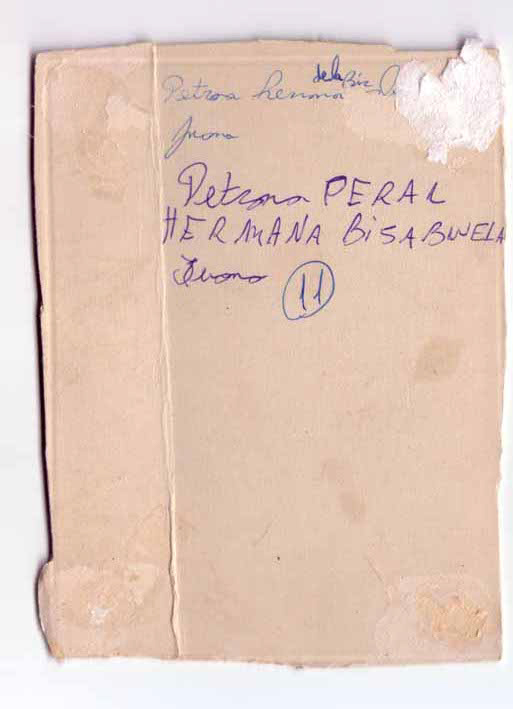 Petrona hermana de la Bis
Juana
Petrona PERAL
HERMANA BiSABUELA
Juana
11